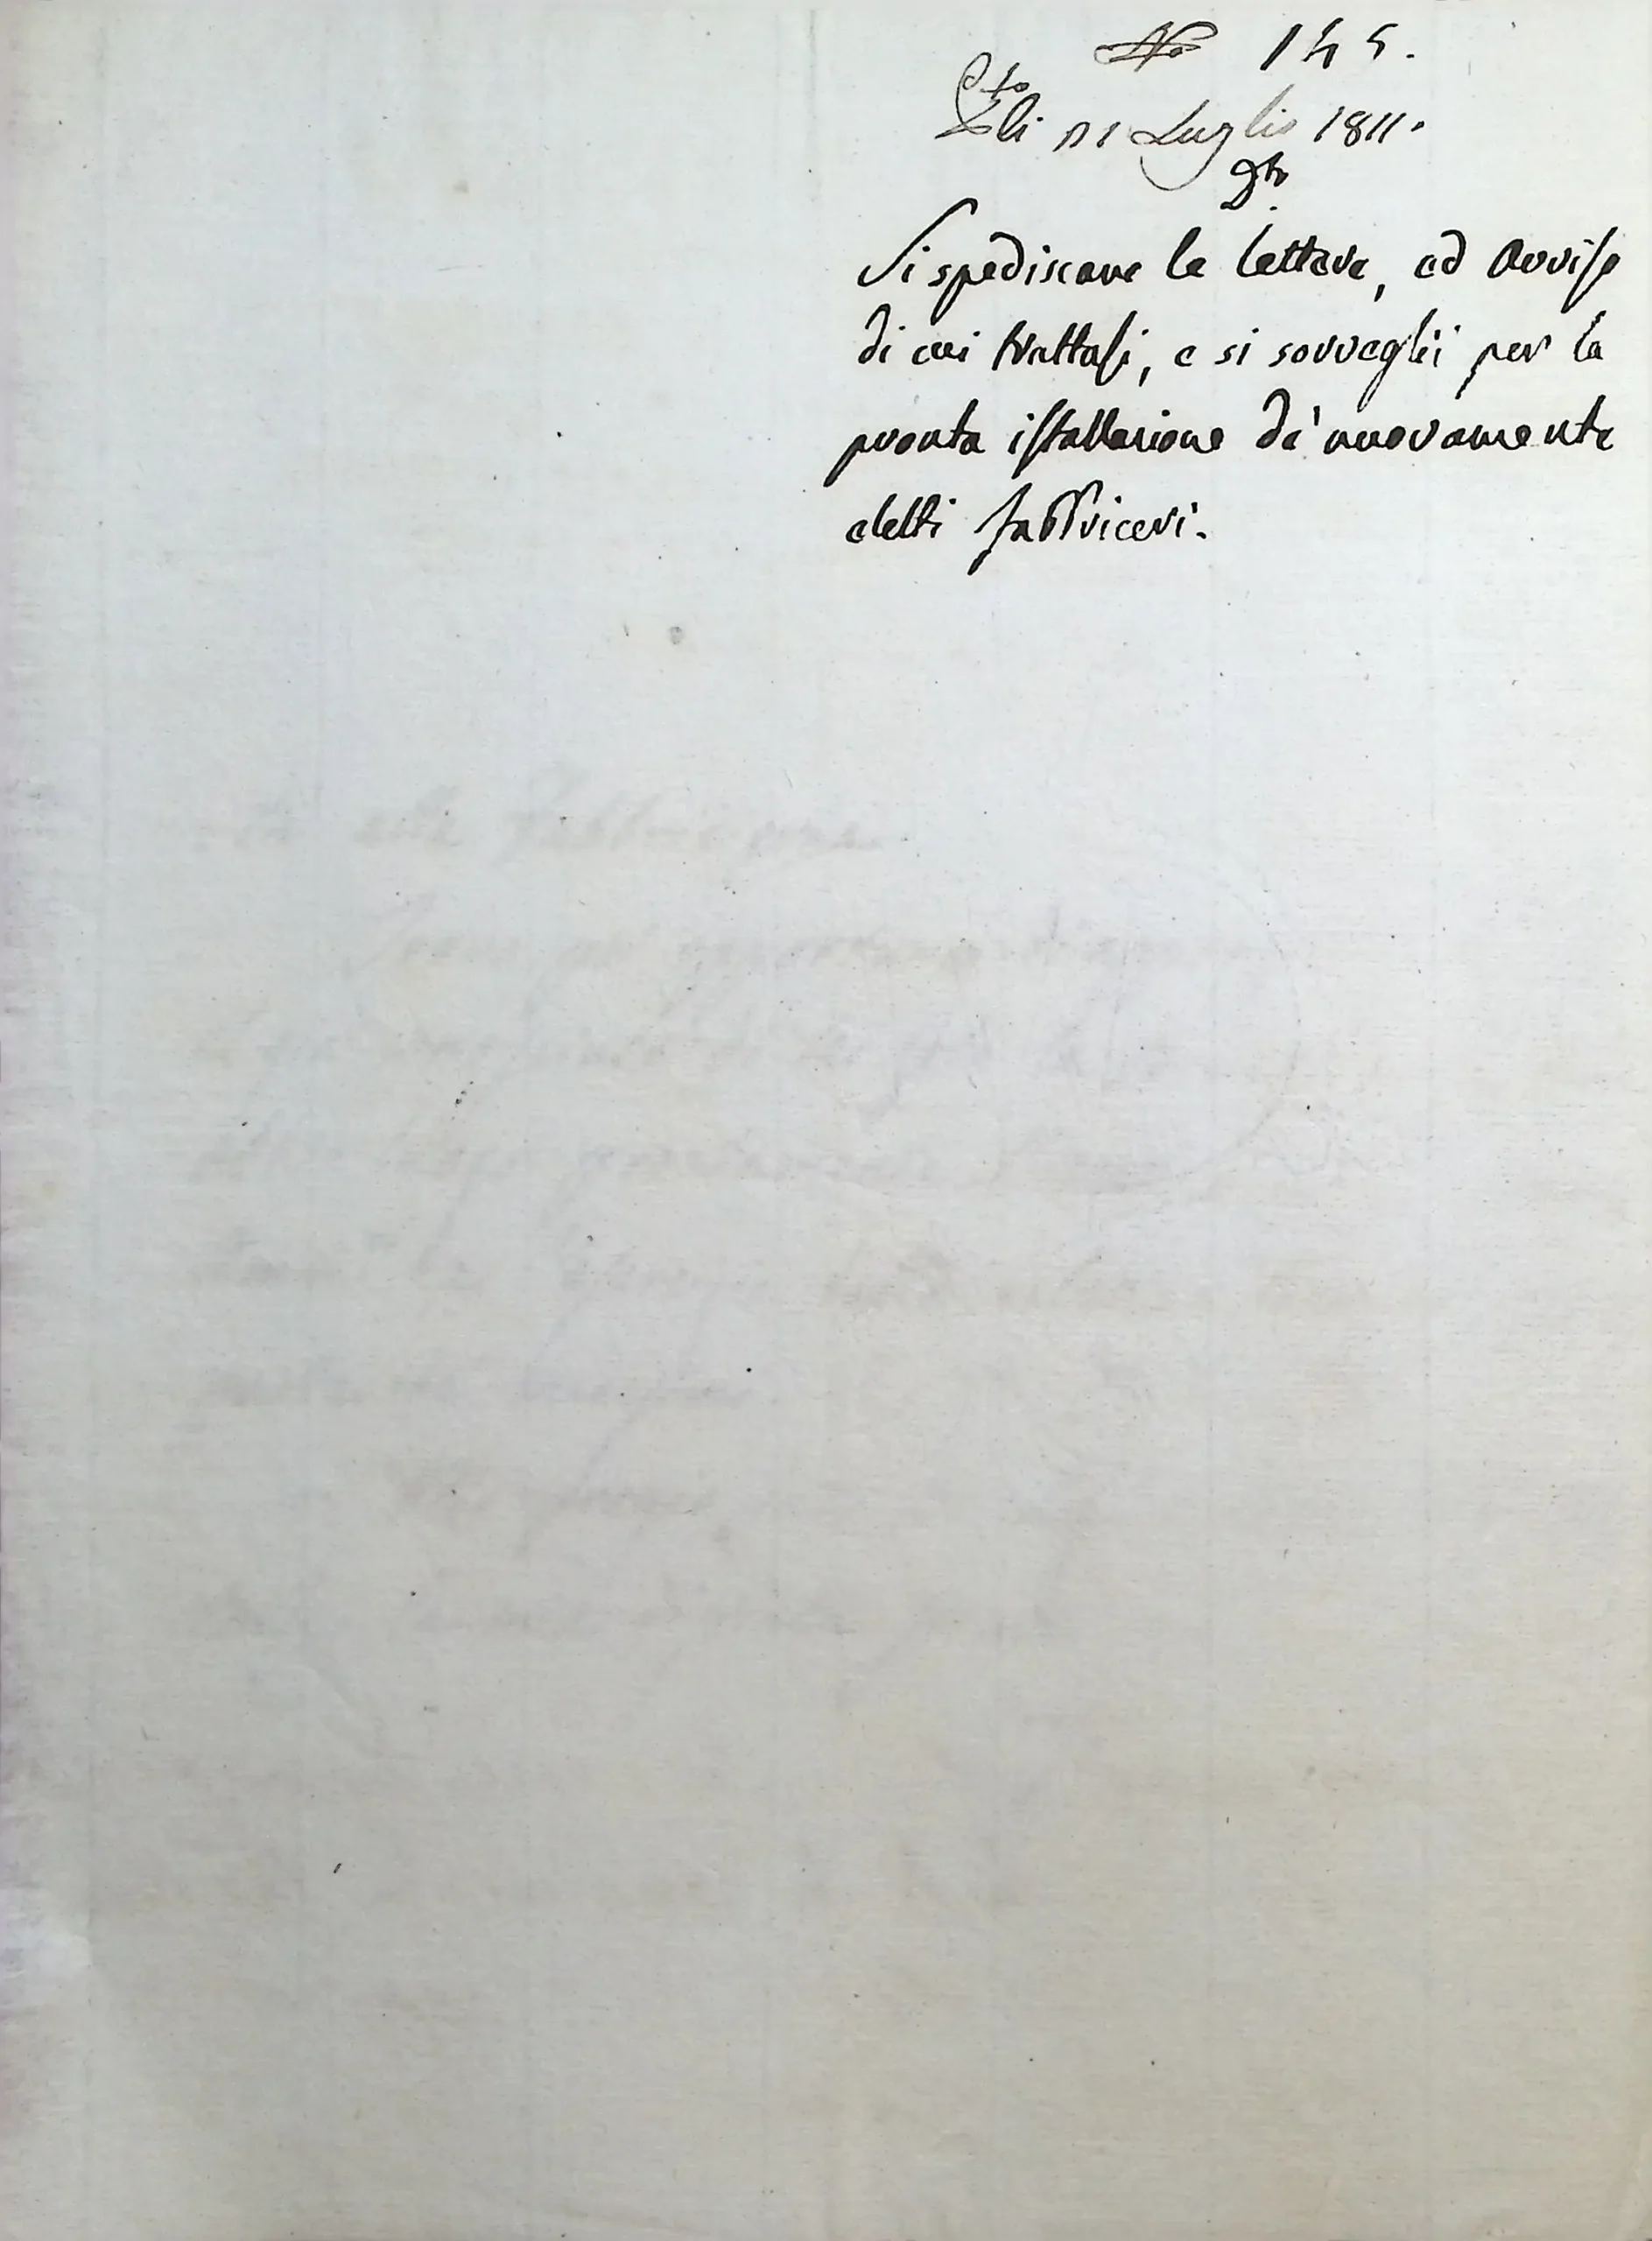 No 145.
Pto li 11 Luglio 1811.
Si spediscano le lettere, ed Avviso
di cui trattasi, e si sorvegli per la
pronta istallazione de' nuovamente
eletti fabbriceri.